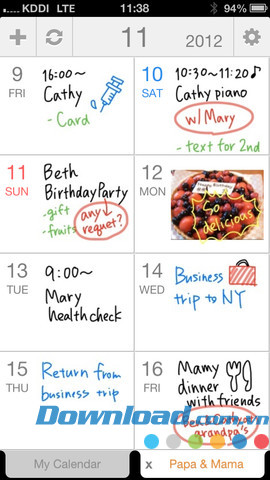 KDDI LTE 11:38
11 2012
9 FRI
16:00~
Cathy
- Card
10 SAT
10:30~11:20♪
Cathy piano
w/Mary
- text for 2nd
11 SUN
Beth
Birthday Party
- gift
- fruits
any
requet?
12 MON
Happy Birthday
So
delicious
13 TUE
9:00~
Mary
health check
14 WED
Business
trip to NY
15 THU
Return from
business trip
16 FRI
Mamy
dinner
with friends
grandpa's
Download.com.vn
My Calendar
x Papa & Mama